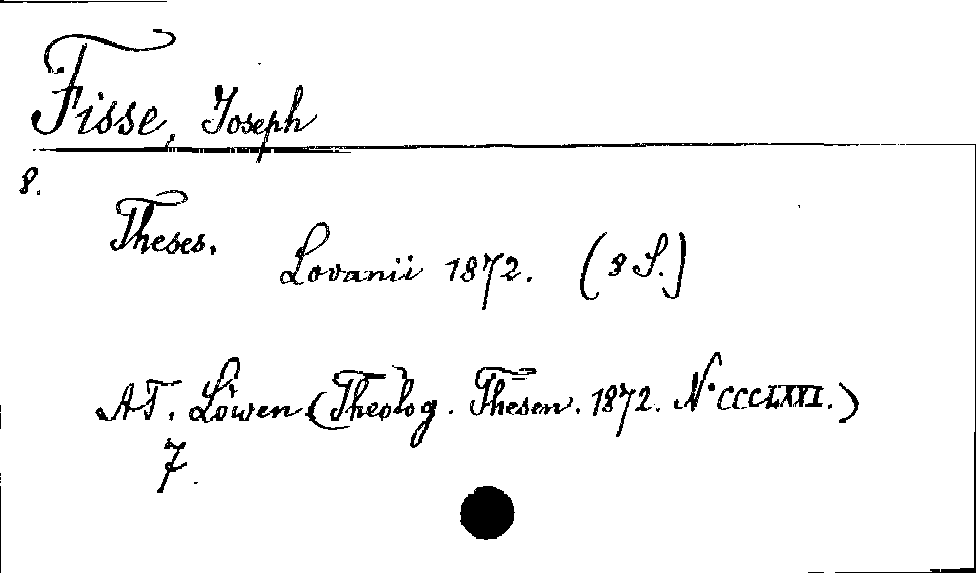 Fisse, Joseph
8.
Theses.
Lovanii 1872. (8 S.)
AT. Löwen (Theolog. Thesen. 1872. N° CCCLXXI.)
7.